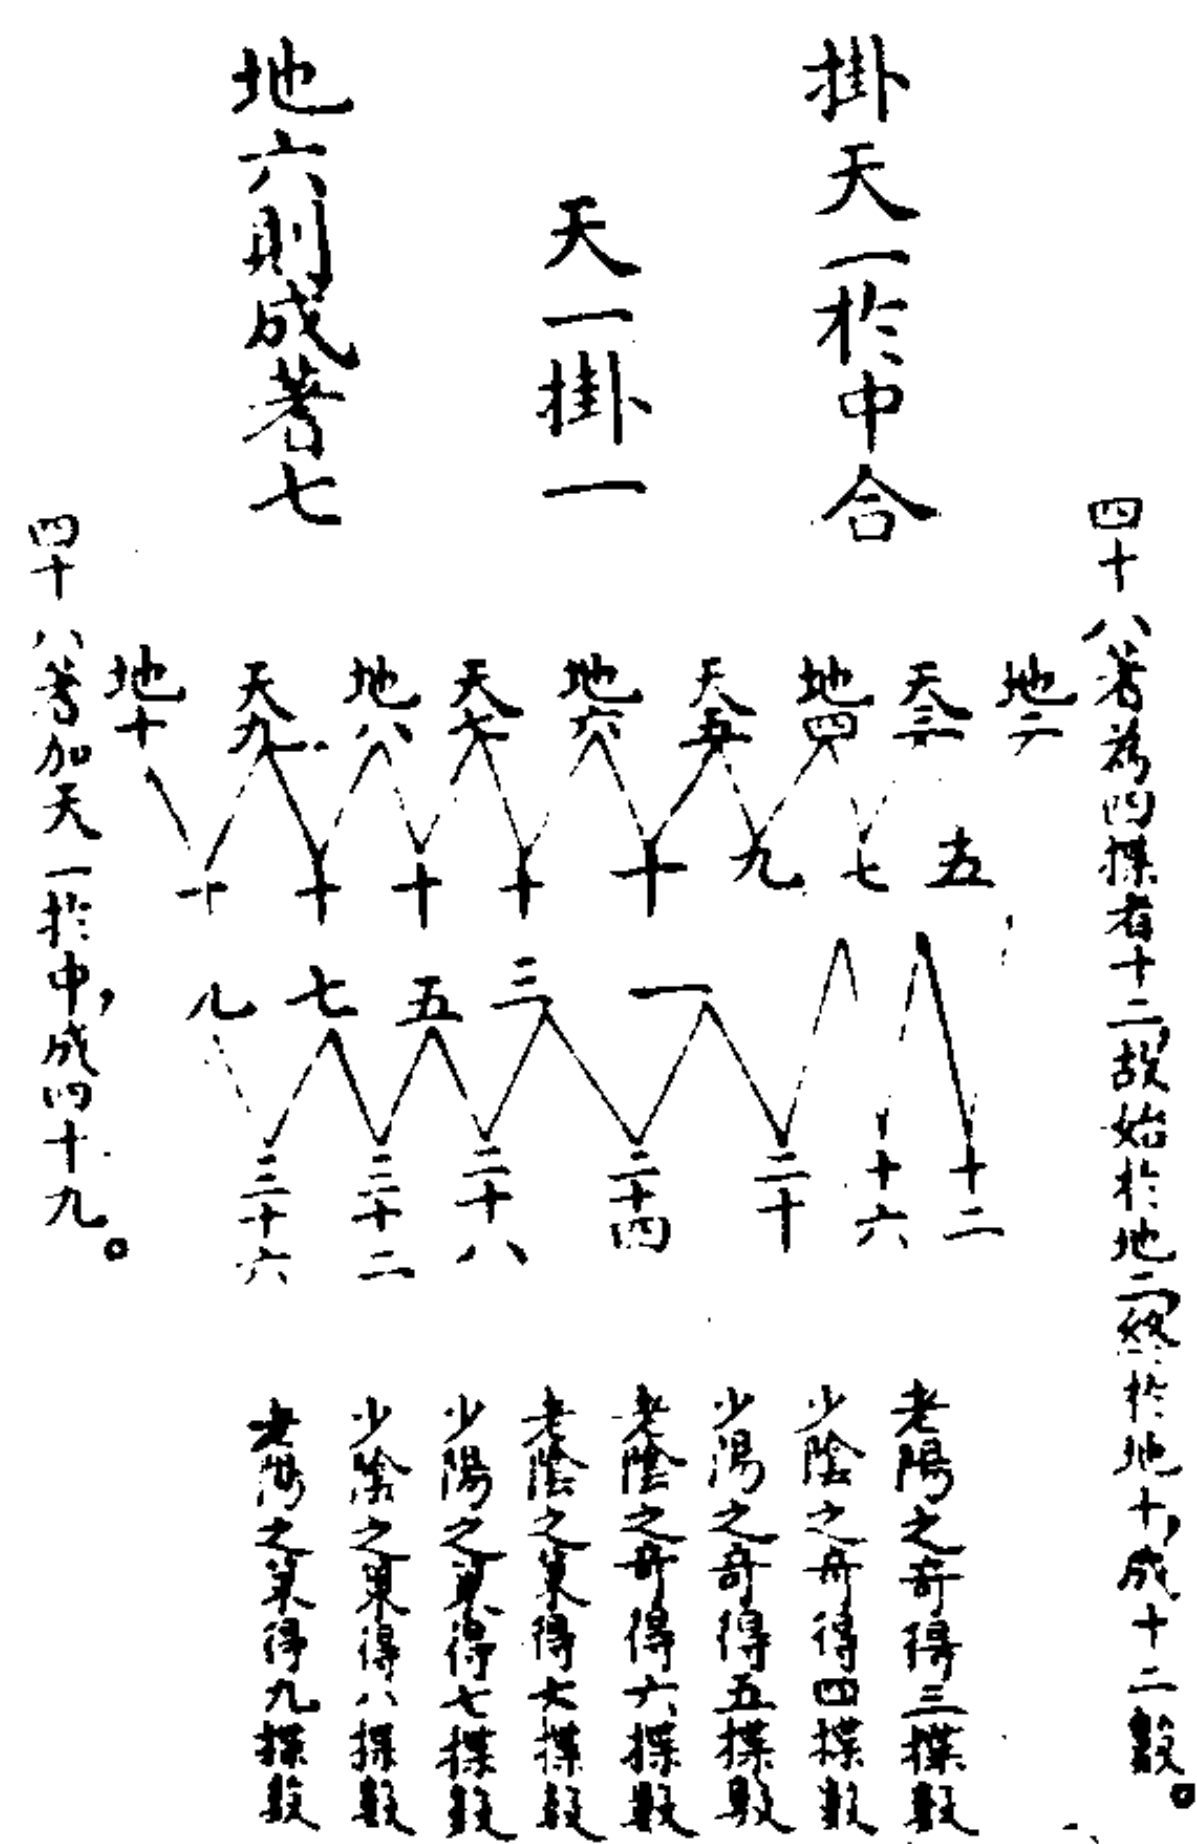 掛天一於中合
天一掛一
地六則成蓍七
四十八蓍為四揲者十二,故始於地二,終於地十,成十二數。
地二
天三
地四
天五
地六
天七
地八
天九
地十
五
七
九
十
十
十
十
十
一
三
五
七
九
十二
十六
二十
二十四
二十八
三十二
三十六
老陽之奇得三揲數
少陰之奇得四揲數
少陽之奇得五揲數
老陰之奇得六揲數
老陰之策得六揲數
少陽之策得七揲數
少陰之策得八揲數
老陽之策得九揲數
四十八蓍加天一於中,成四十九。